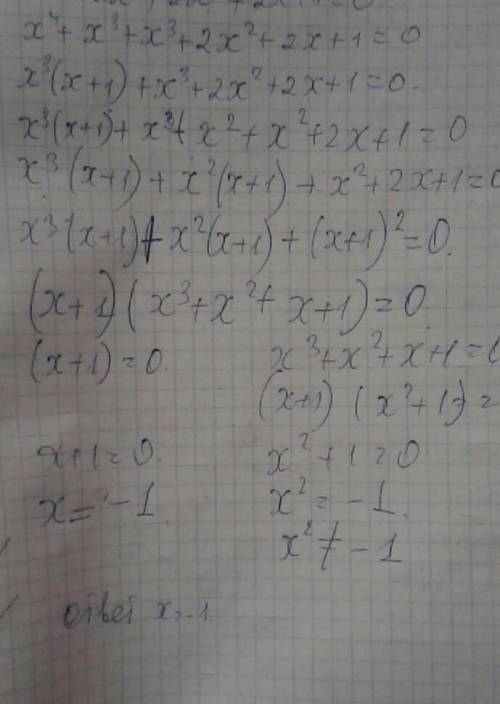 x⁴ + x³ + x³ + 2x² + 2x + 1 = 0
x³(x+1) + x³ + 2x² + 2x + 1 = 0.
x³(x+1) + x³ + x² + x² + 2x + 1 = 0
x³(x+1) + x²(x+1) + x² + 2x + 1 = 0
x³(x+1) + x²(x+1) + (x+1)² = 0.
(x+1)(x³ + x² + x + 1) = 0
(x+1) = 0. x³ + x² + x + 1 = 0
(x+1)(x² + 1) =
x+1 = 0 x² + 1 = 0
x = -1. x² = -1.
x² ≠ -1
ответ x = -1.